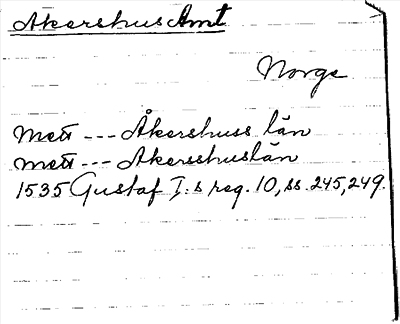 Akershus Amt
Norge
mett --- Åkershuss län
mett --- Akersshuslän
1535 Gustaf I:s reg. 10, ss. 245, 249.